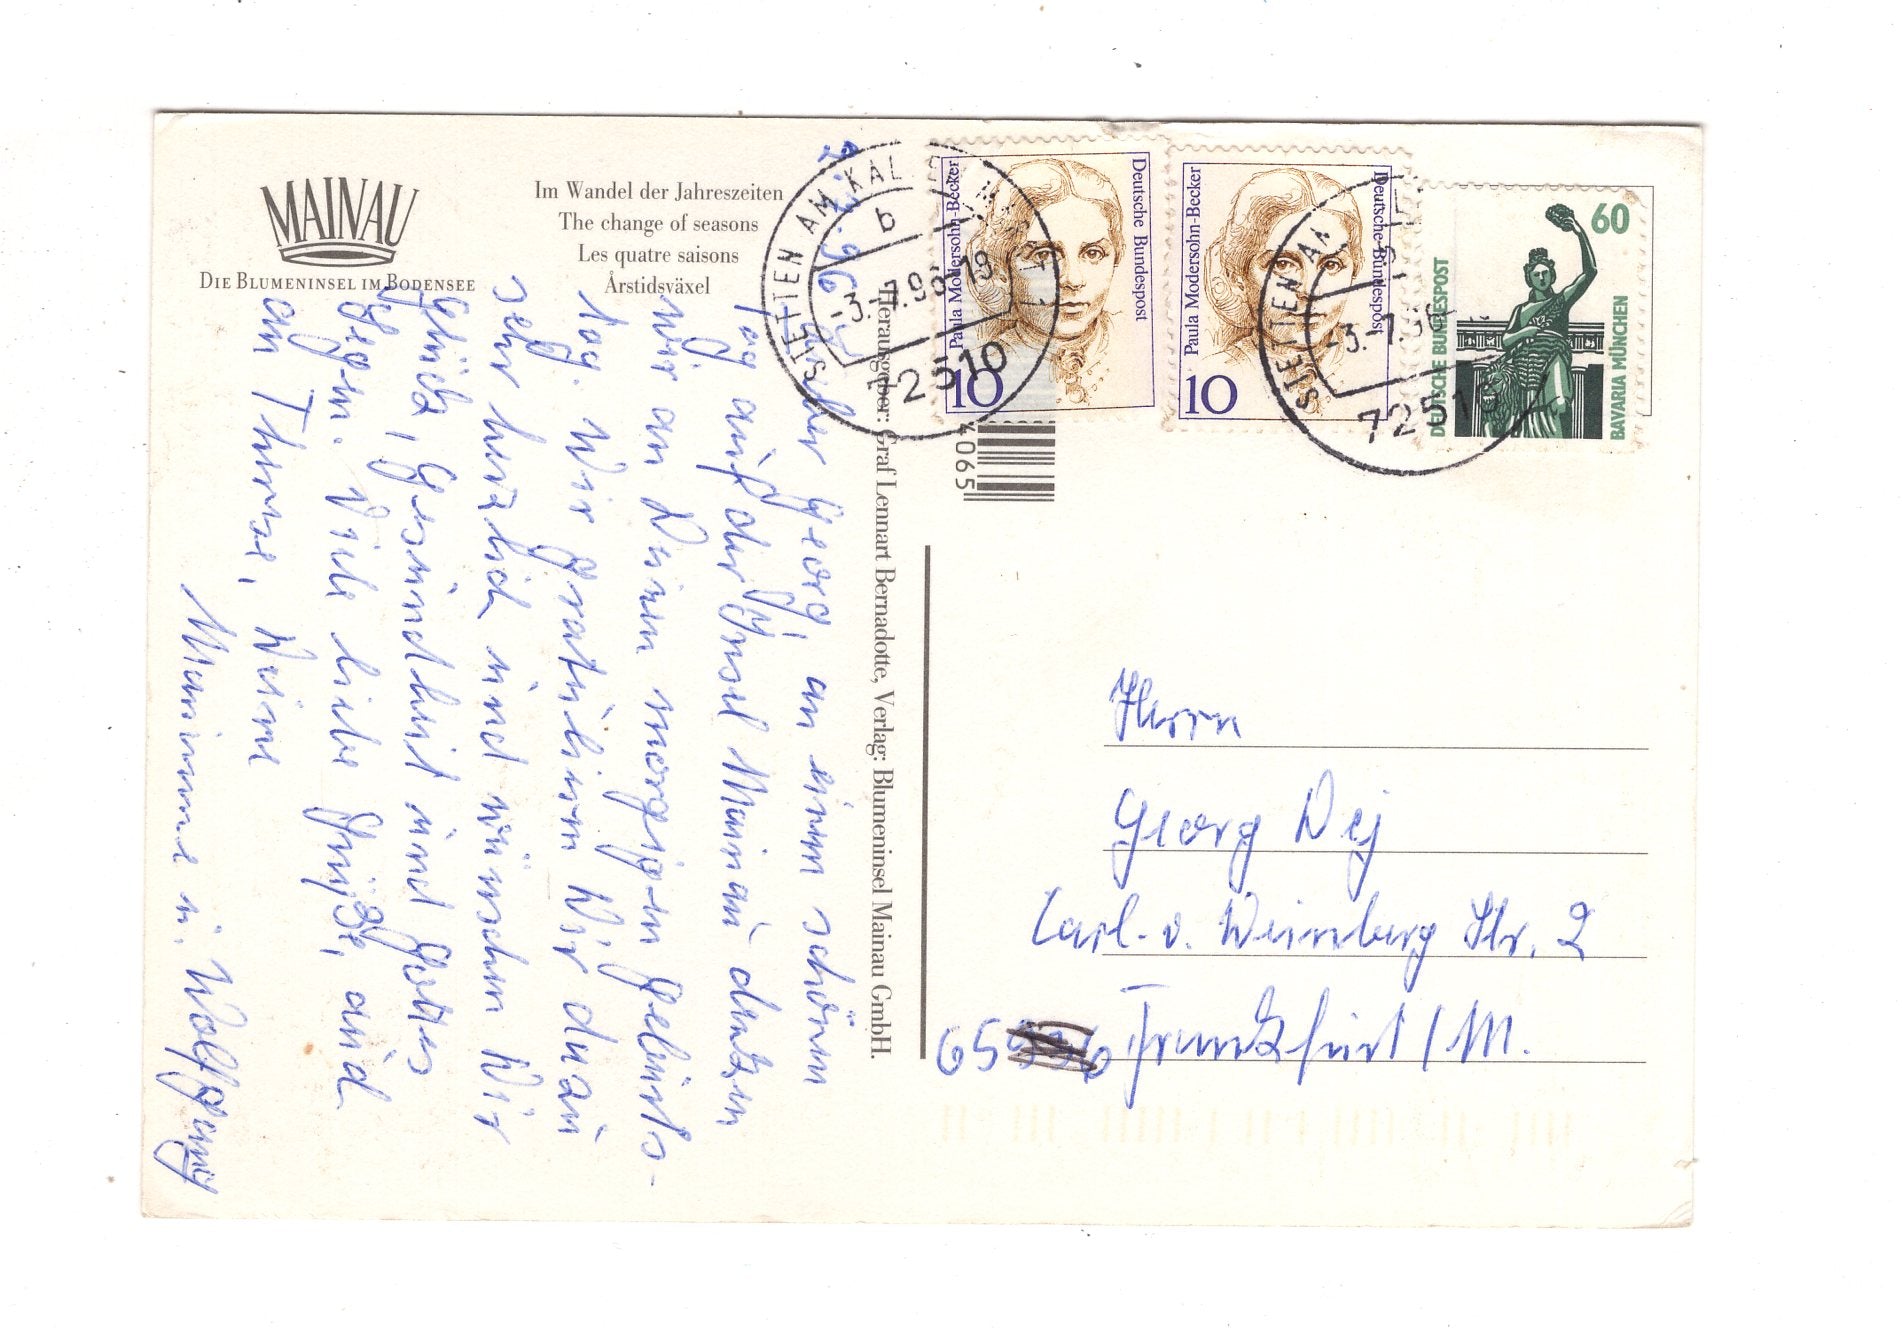 MAINAU
DIE BLUMENINSEL IM BODENSEE
Im Wandel der Jahreszeiten
The change of seasons
Les quatre saisons
Årstidsväxel
2.7.96
Lieber Georg, an einem schönen
Tag auf der Insel Mainau denken
wir an Deinen morgigen Geburts-
tag. Wir gratulieren Dir dazu
sehr herzlich und wünschen Dir
Glück, Gesundheit und Gottes
Segen. Viele liebe Grüße, auch
an Therese, Deine
Marianne u. Wolfgang
Herausgeber: Graf Lennart Bernadotte, Verlag: Blumeninsel Mainau GmbH.
4065
Paula Modersohn-Becker
Deutsche Bundespost
10
Paula Modersohn-Becker
Deutsche Bundespost
10
60
DEUTSCHE BUNDESPOST
BAVARIA MÜNCHEN
STETTEN AM KALTEN MARKT
b
-3.-7.96-18
72510
STETTEN AM
-3.-7.96
72510
Herrn
Georg Dej
Carl-v. Weinberg Str. 2
65936 Frankfurt/M.